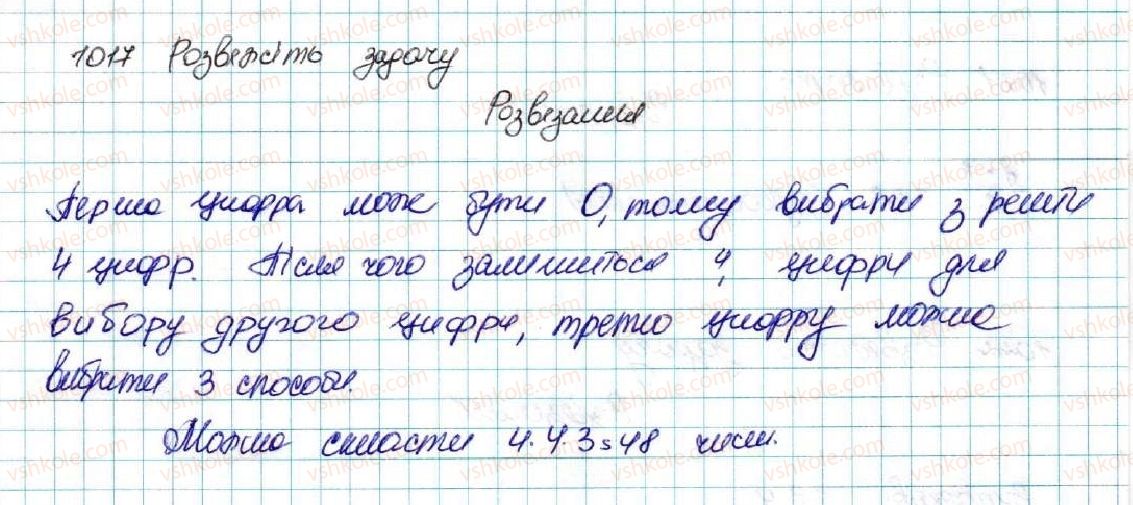 1017 Розвежіть задачу
Розвезання
Перша цифра може бути 0, тому вибрати з решти
4 цифр. Після чого залишиться 4, цифри для
вибору другого цифри, третю цифру можна
вибрати 3 способи.
Можна скласти 4·4·3=48 чисел.